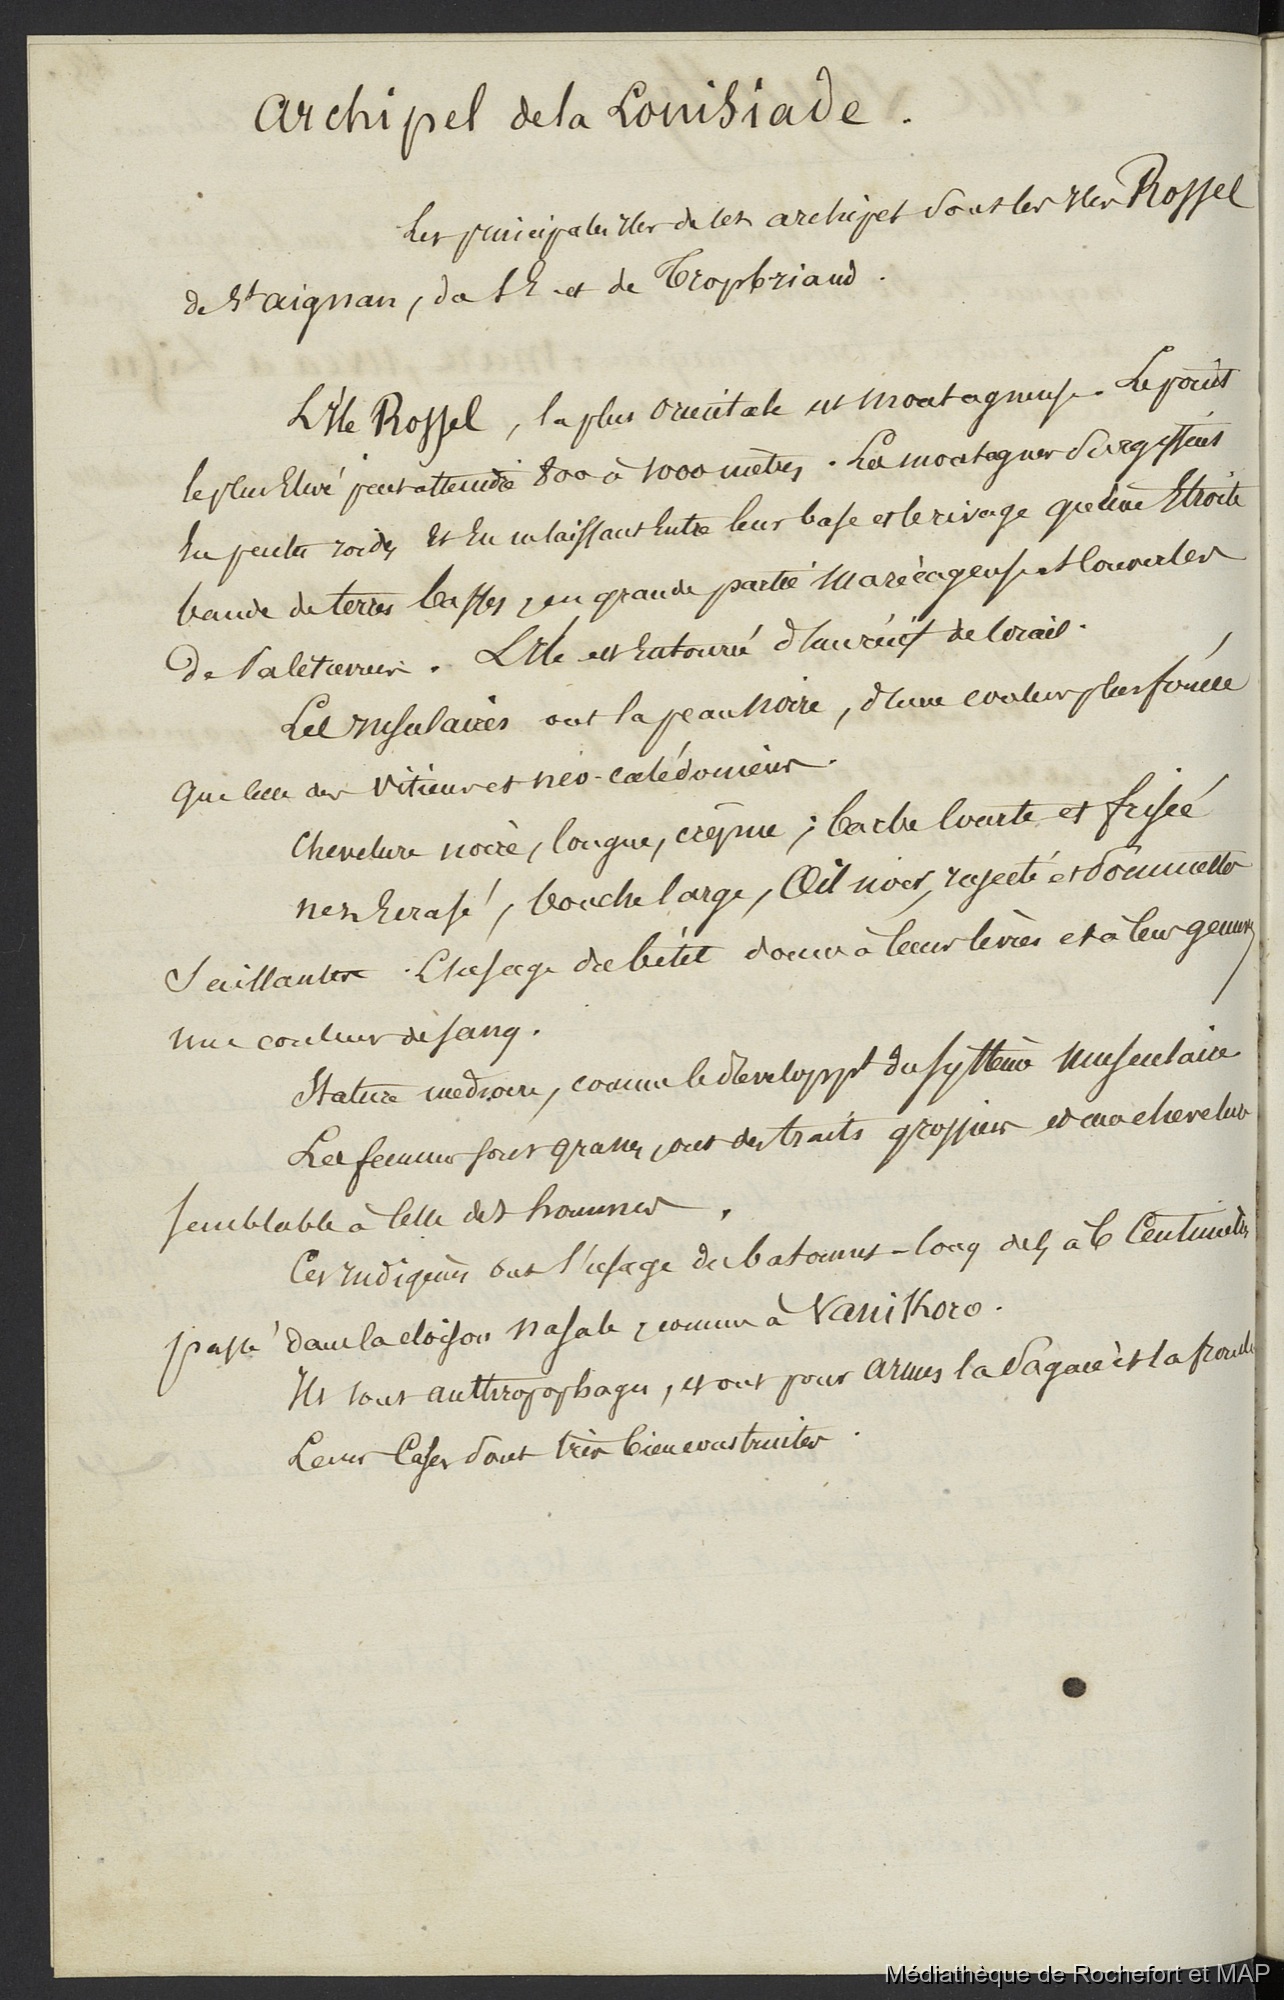 Archipel de la Louisiade.
Les principales Iles de cet archipel sont les Iles Rossel
de St aignan, du S.E. et de Tropbriand.
L'Ile Rossel, la plus orientale est montagneuse. Le point
le plus Elevé peut atteindre 800 à 1000 mètres. Les montagnes surgissent
En pentes roides Et En ne laissant Entre leur base et le rivage qu'une Etroite
bande de terres basses, en grande partie marécageuses et couvertes
de Palétuviers. L'Ile est Entourée d'un récif de corail.
Les Insulaires ont la peau noire, d'une couleur plus foncée
que celle des Vitiens et néo-calédoniens.
Chevelure noire, longue, crépue; barbe courte et frisée
nez Ecrasé, bouche large, Œil noir, injecté et pommettes
Saillantes. L'usage du bétel donne à leurs lèvres et à leurs gencives
une couleur de sang.
Stature médiocre, comme le développt du système musculaire
Les femmes sont grasses, ont des traits grossiers et une chevelure
semblable à celle des hommes.
Ces indigènes ont l'usage du batonnet-long de 5 à 6 Centimètres
passé dans la cloison nasale, comme à Vanikoro.
Ils sont anthropophages, et ont pour armes la Sagaie et la fronde
Leurs Cases sont très bien construites.
Médiathèque de Rochefort et MAP